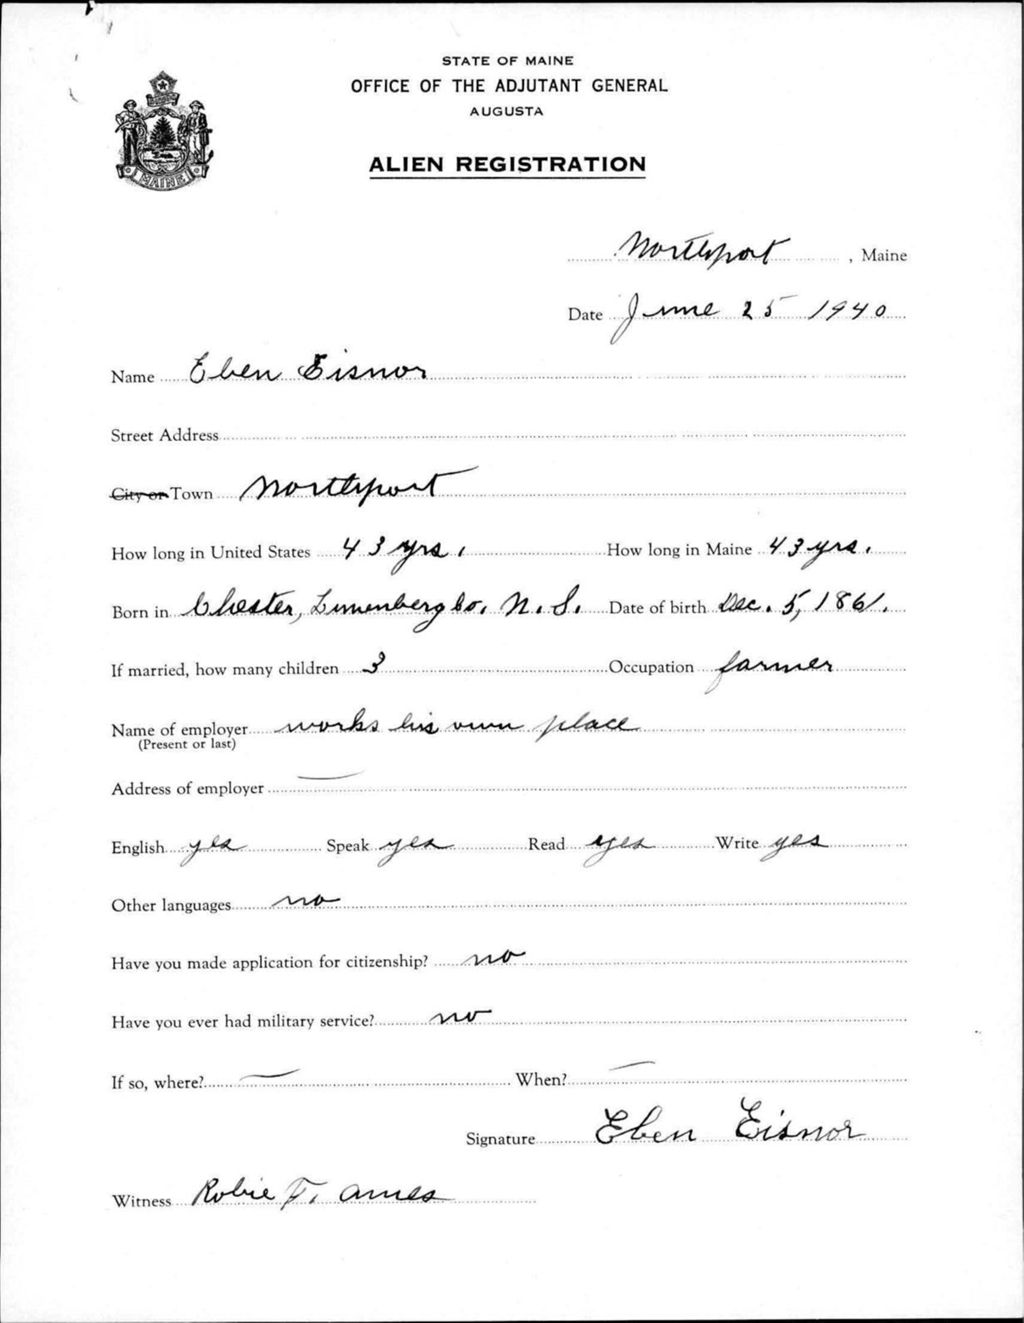 STATE OF MAINE
OFFICE OF THE ADJUTANT GENERAL
AUGUSTA
ALIEN REGISTRATION
MAINE
Northport, Maine
Date June 25 1940
Name Eben Eisnor
Street Address
City or Town Northport
How long in United States 43 yrs. How long in Maine 43 yrs.
Born in Chester, Lunenberg Co. N.S. Date of birth Dec. 5, 1861.
If married, how many children 3 Occupation farmer
Name of employer works his own place
(Present or last)
Address of employer —
English yes Speak yes Read yes Write yes
Other languages no
Have you made application for citizenship? no
Have you ever had military service? no
If so, where? — When? —
Signature Eben Eisnor
Witness Robie F. Ames